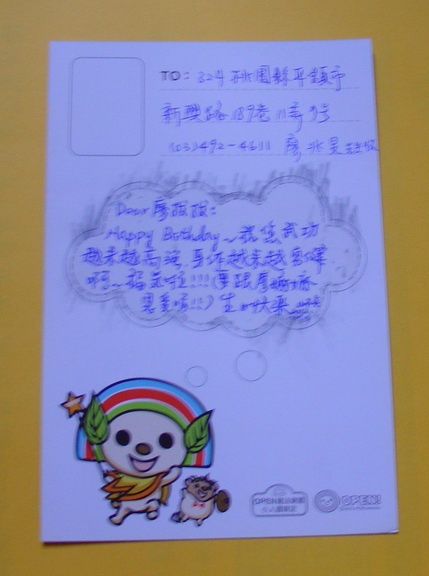 TO: 324 桃園縣平鎮市
新興路189巷11弄9號
(03)492-4611 廖
Dear 廖報報:
Happy Birthday～祝您武功
越來越高強,身体越來越勇健
啊～福氣啦!!!(要跟廖媽媽
恩愛唷!!!)生日快樂
OPEN!